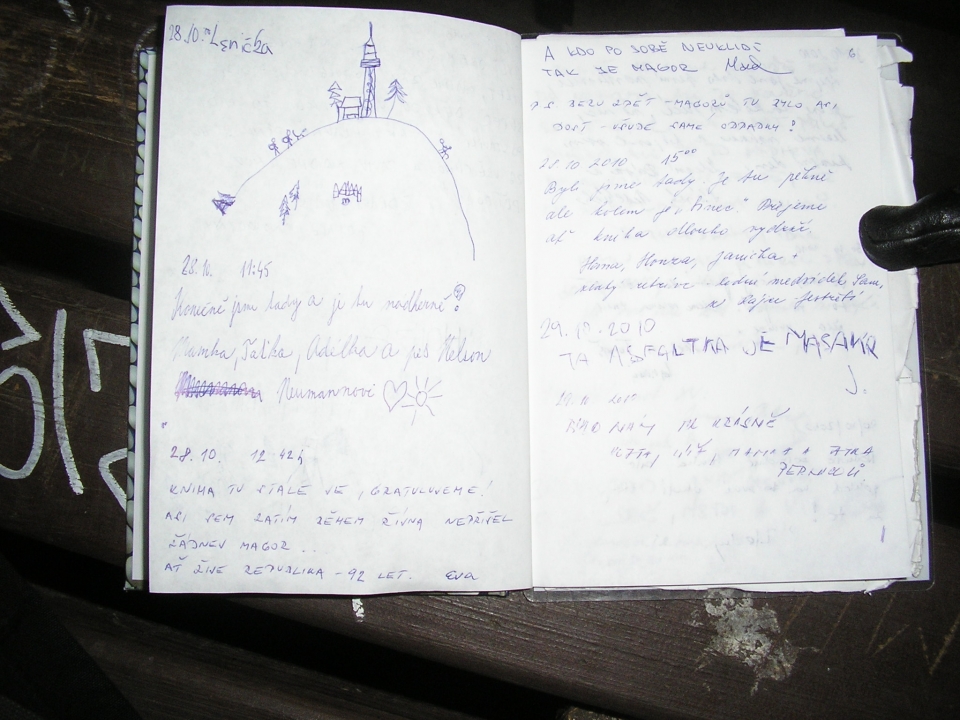 28.10. Lenička
28.10. 11:45
Konečně jsme tady a je tu nádherně!
Mamka, Taťka, Adélka a pes Nelson
Neumannovi
28.10. 12 42h
KNIHA TU STÁLE JE, GRATULUJEME!
ASI SEM ZATÍM BĚHEM ŘÍJNA NEPŘIŠEL
ŽÁDNEJ MAGOR...
AŤ ŽIJE REPUBLIKA - 92 LET. Eva
A KDO PO SOBĚ NEUKLIDÍ 6
TAK JE MAGOR
P.S. BERU ZPĚT - MAGORŮ TU BYLO ASI
DOST - VŠUDE SAMÉ ODPADKY!
28 10 2010 15°°
Byli jsme tady. Je tu pěkně
ale kolem je "binec". Přejeme
ať kniha dlouho vydrží.
Hana, Honza, Janička +
lední medvídek Sam,
29.10.2010
TA ASFALTKA JE MASAKR
J.
2010
BYLO NÁM TU KRÁSNĚ